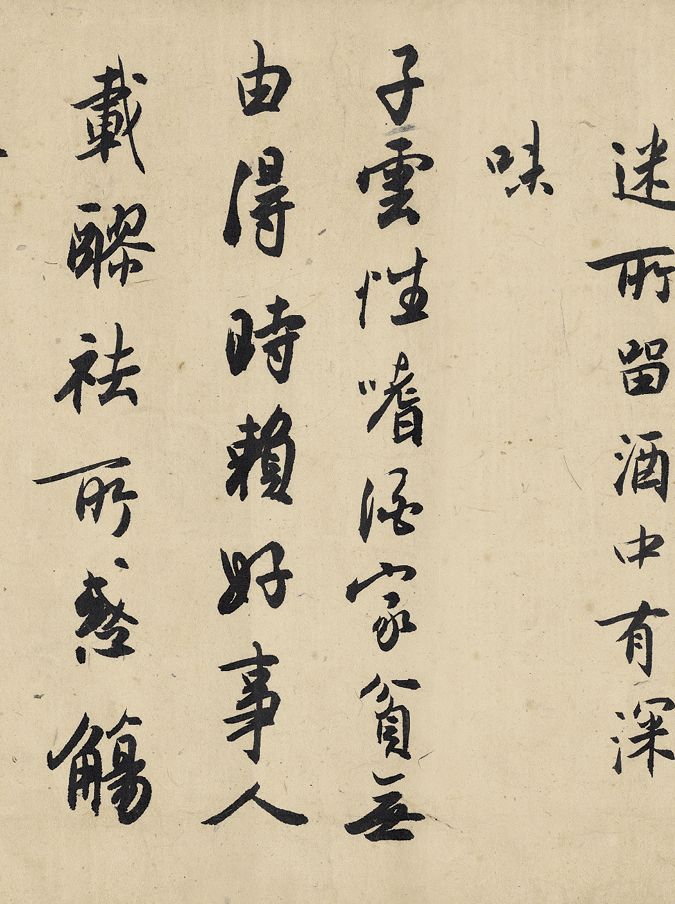 迷所留酒中有深
味
子雲性嗜酒家貧無
由得時賴好事人
載醪祛所惑觴